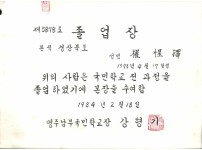 제5878호 졸업장
본적 경상북도
성명 權
1971년 4월 17일생
위의 사람은 국민학교 전 과정을
졸업하였기에 본장을 수여함
1984년 2월 18일
영주남부국민학교장 강형기